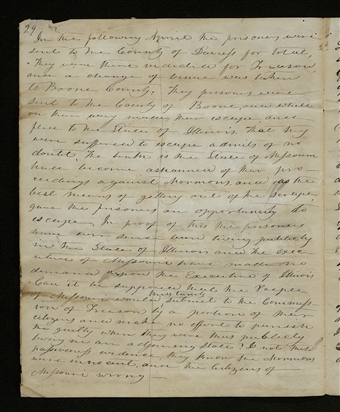 29
In the following April the prisoners were
sent to the County of Daviess for trial
They were there indicted for Treason
and a change of venue was taken
to Boone County. The prisoners were
sent to the County of Boone, and while
on their way made their escape, and
fled to the State of Illinois. That they
were suffered to escape admits of no
doubt. The truth is the State of Missouri
had become ashamed of their pro-
ceedings against Mormons, and as the
best means of getting out of the scrape,
gave the prisoners an opportunity to
escape. In proof of this the prisoners
have ever since been living publicly
in the State of Illinois and the Exec-
utive of Missouri has made no
demand upon the Executive of Illinois
Can it be supposed that the People
of Missouri would thus tamely submit to the Commiss-
ion of Treason by a portion of their
citizens and make no effort to punish
the guilty when they were thus publicly
living in an adjoining State? Is not this
passiveness evidence, they knew the Mormons
were innocent, and the Citizens of
Missouri wrong